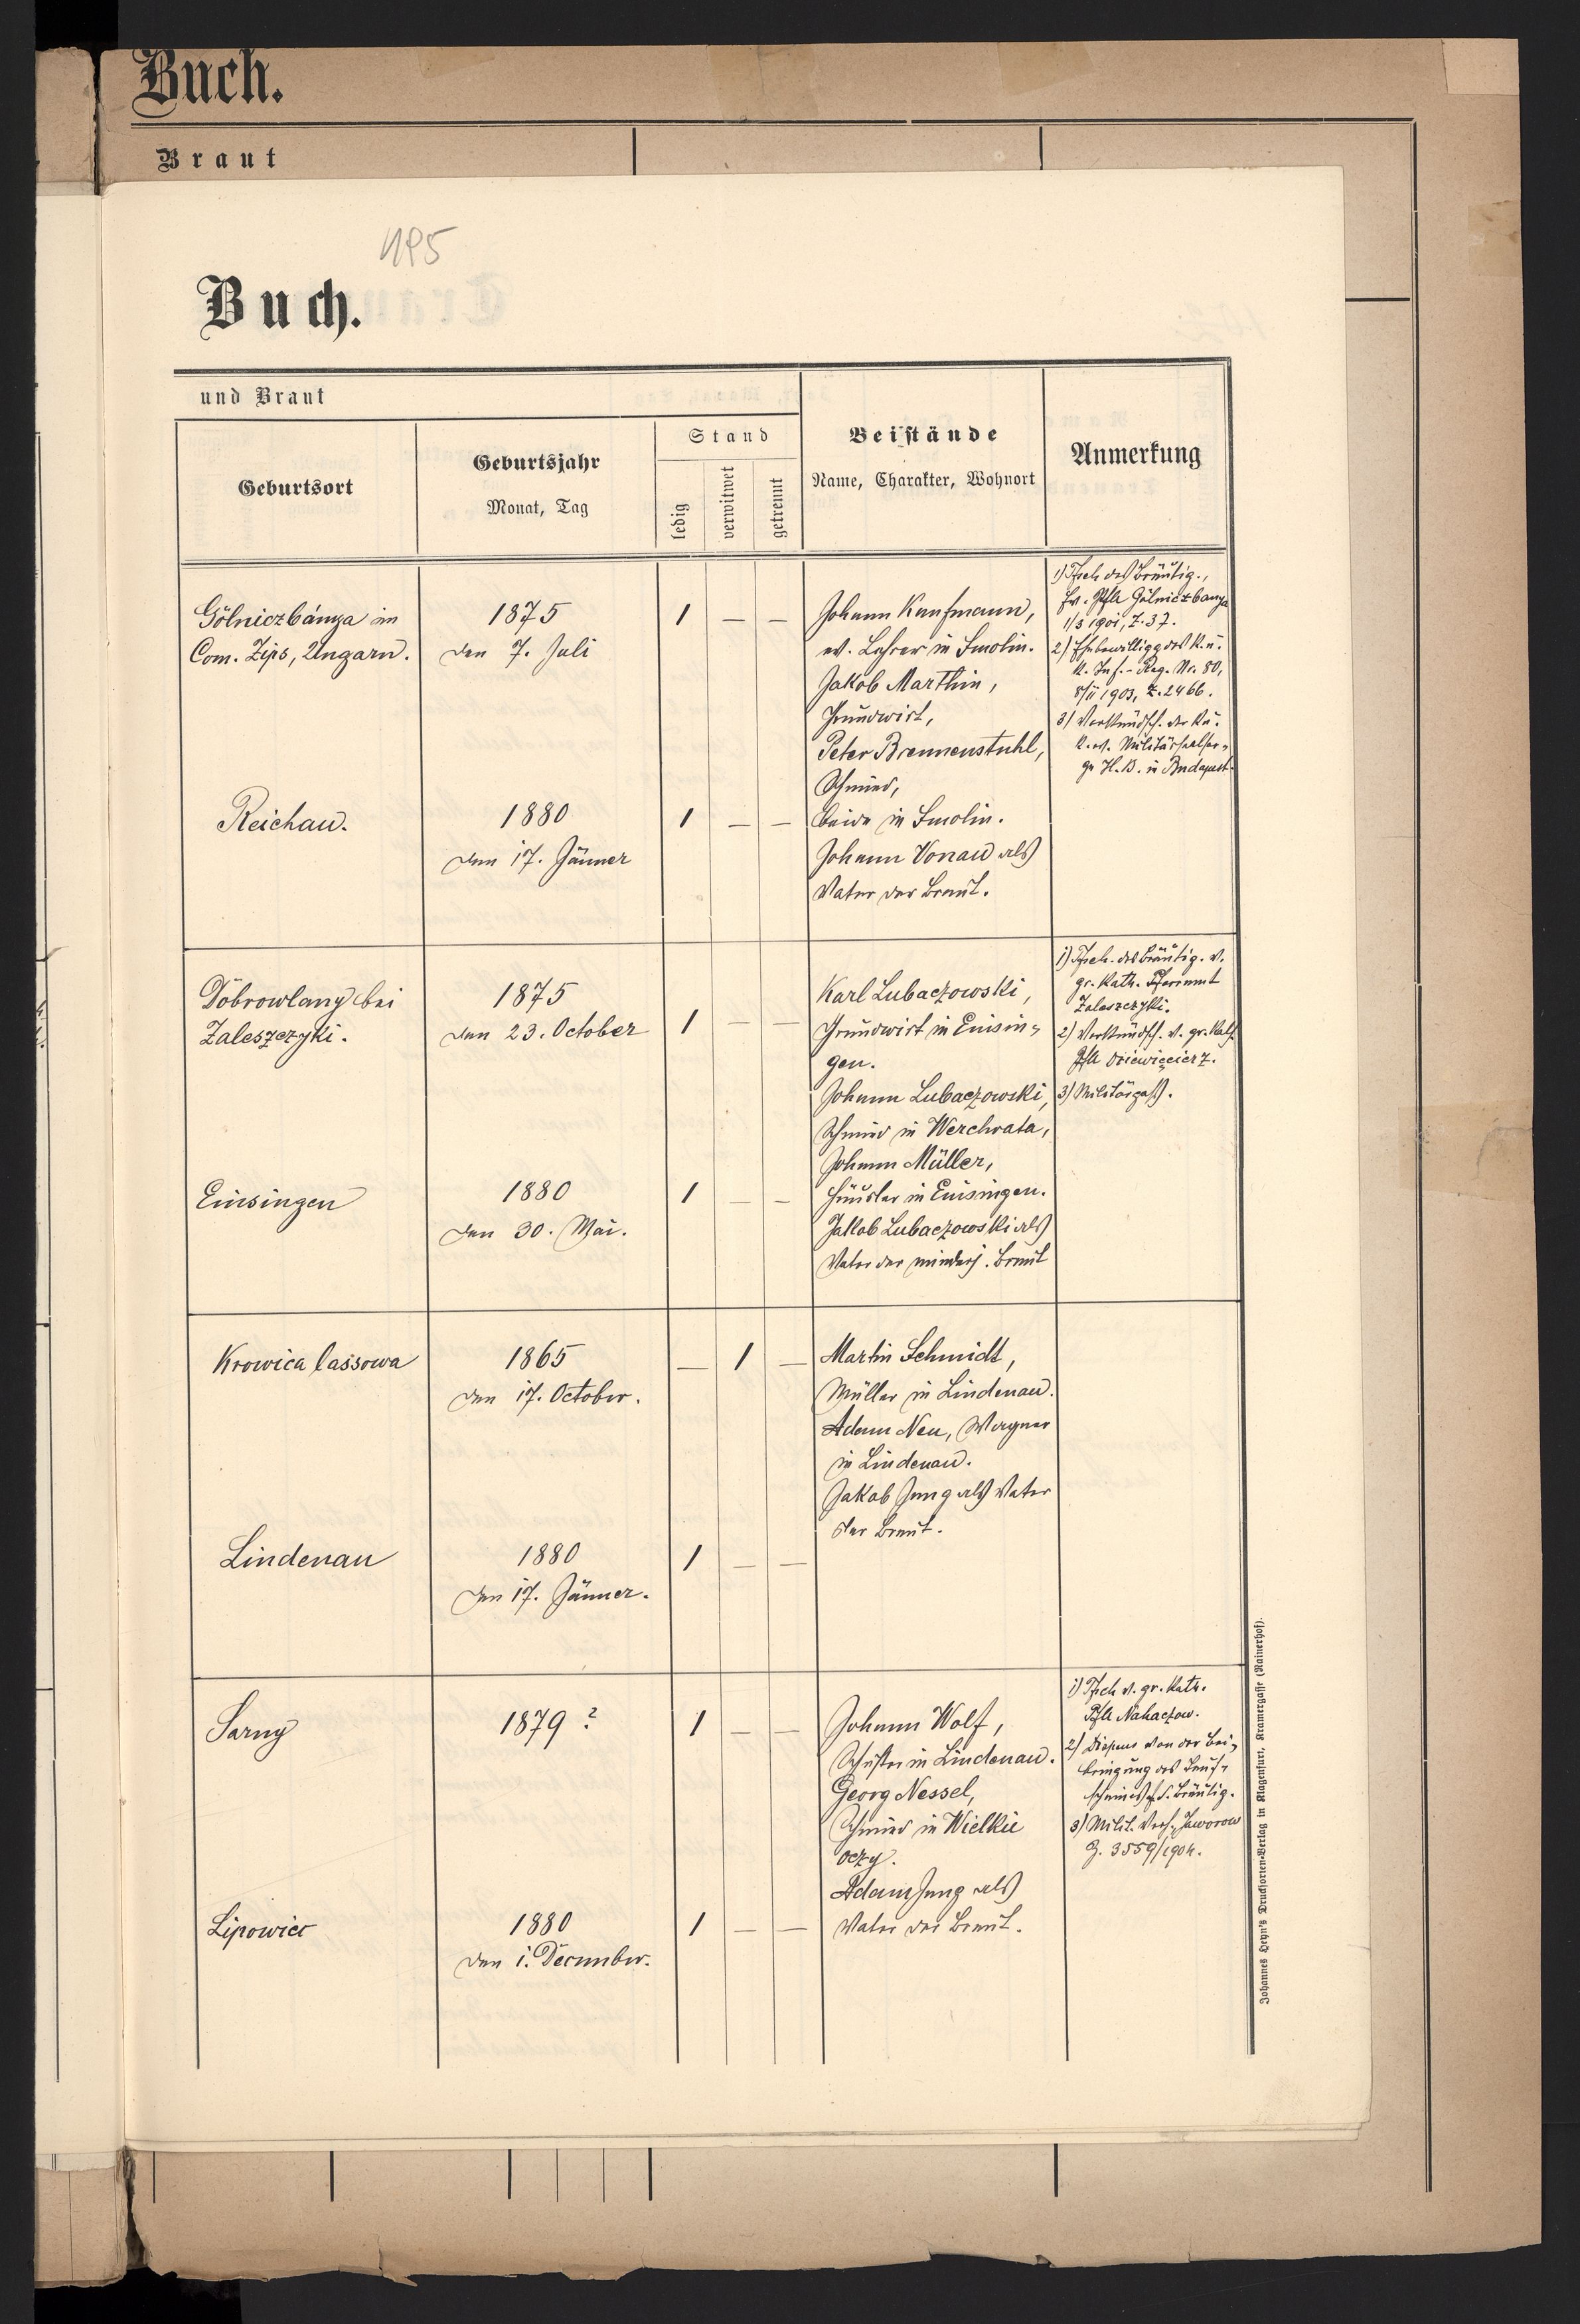 Buch.
Braut
185
Buch.
und Braut
Geburtsort
Geburtsjahr
Monat, Tag
Stand
ledig
verwitwet
getrennt
Beistände
Name, Charakter, Wohnort
Anmerkung
Gölniczbánya im
Com. Zips, Ungarn.
1875
den 7. Juli
1 — —
Johann Kaufmann,
ev. Lehrer in Smolin.
Jakob Marthin,
Grundwirt,
Peter Brennenstuhl,
Schmied,
beide in Smolin.
Johann Vonau als
Vater der Braut.
1) Tfsch des Bräutig.,
Ev. Pfa Gölniczbanya
1/3 1901, Z. 37.
2) Ehebewilligg des k. u.
k. Inf.-Reg. Nr. 80,
8/II 1903, Z. 2466.
3) Verkündsch. der k. u.
k. ev. Militärseelsor-
ge H. B. in Budapest.
Reichau.
1880
den 17. Jänner
1 — —
Dobrowlany bei
Zaleszczyki.
1875
den 23. October
1 — —
Karl Lubaczowski,
Grundwirt in Einsin-
gen.
Johann Lubaczowski,
Schmied in Werchrata,
Johann Müller,
Häusler in Einsingen.
Jakob Lubaczowski als
Vater der minderj. Braut
1) Tfsch. des Bräutig. v.
gr. kath. Pfarramt
Zaleszczyki.
2) Verkündsch. v. gr. kath.
Pfa Dziewięcierz.
3) Militärpaß.
Einsingen
1880
den 30. Mai.
1 — —
Krowica lassowa
1865
den 17. October.
— 1 —
Martin Schmidt,
Müller in Lindenau.
Adam Neu, Wagner
in Lindenau.
Jakob Jung als Vater
der Braut.
Lindenau
1880
den 17. Jänner.
1 — —
Sarny
1879 ?
1 — —
Johann Wolf,
Schuster in Lindenau.
Georg Nessel,
Schmied in Wielkie
oczy.
Adam Jung als
Vater der Braut.
1) Tfsch v. gr. kath.
Pfa Nahaczow.
2) Dispens von der Bei-
bringung des Tauf-
scheines f. d. Bräutig.
3) Milit. Verh. Jaworow
Z. 3559/1904.
Lipowiec
1880
den 1. December.
1 — —
Johannes Heyn's Drucksorten-Verlag in Klagenfurt, Kramergasse (Rainerhof).